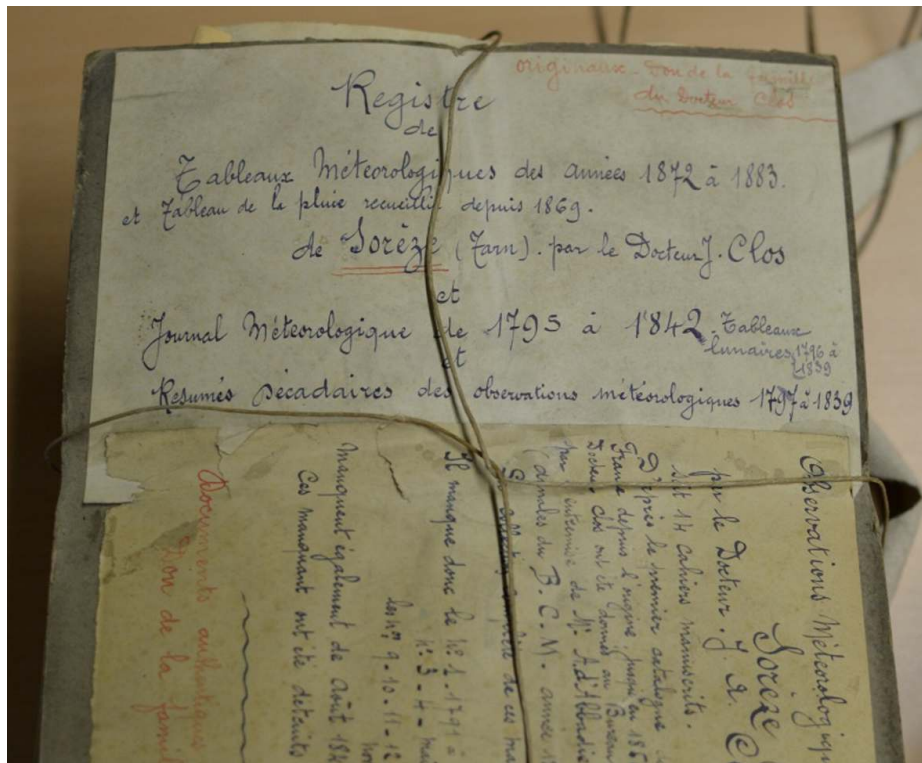 originaux - Don de la famille
du Docteur Clos
Registre
de
Tableaux Météorologiques des années 1872 à 1883.
et Tableau de la pluie recueillie depuis 1869.
de Sorèze (Tarn). par le Docteur J. Clos
et
Journal Météorologique de 1795 à 1842. Tableaux
lunaires 1796 à
1839
et
Résumés Décadaires des observations météorologiques 1797 à 1839
Observations Météorologiq
Sorèze
par le Docteur. J. A. C
soit 14 cahiers manuscrits.
D'après le premier catalogue
France depuis l'origine jusqu'en 185
Docteur Clos ont été donnés au Bureau
par l'intermise de Mr. A. d'Abbadie
(annales du B.C.M. année 1
de ces ma
Il manque donc le No 1 - 1791 à
No 3 - 4 - mai
les nos 9 - 10 - 11 - 12
Manquent également de août 184
Ces manquant ont été détruits
Documents authentiques
Don de la famil